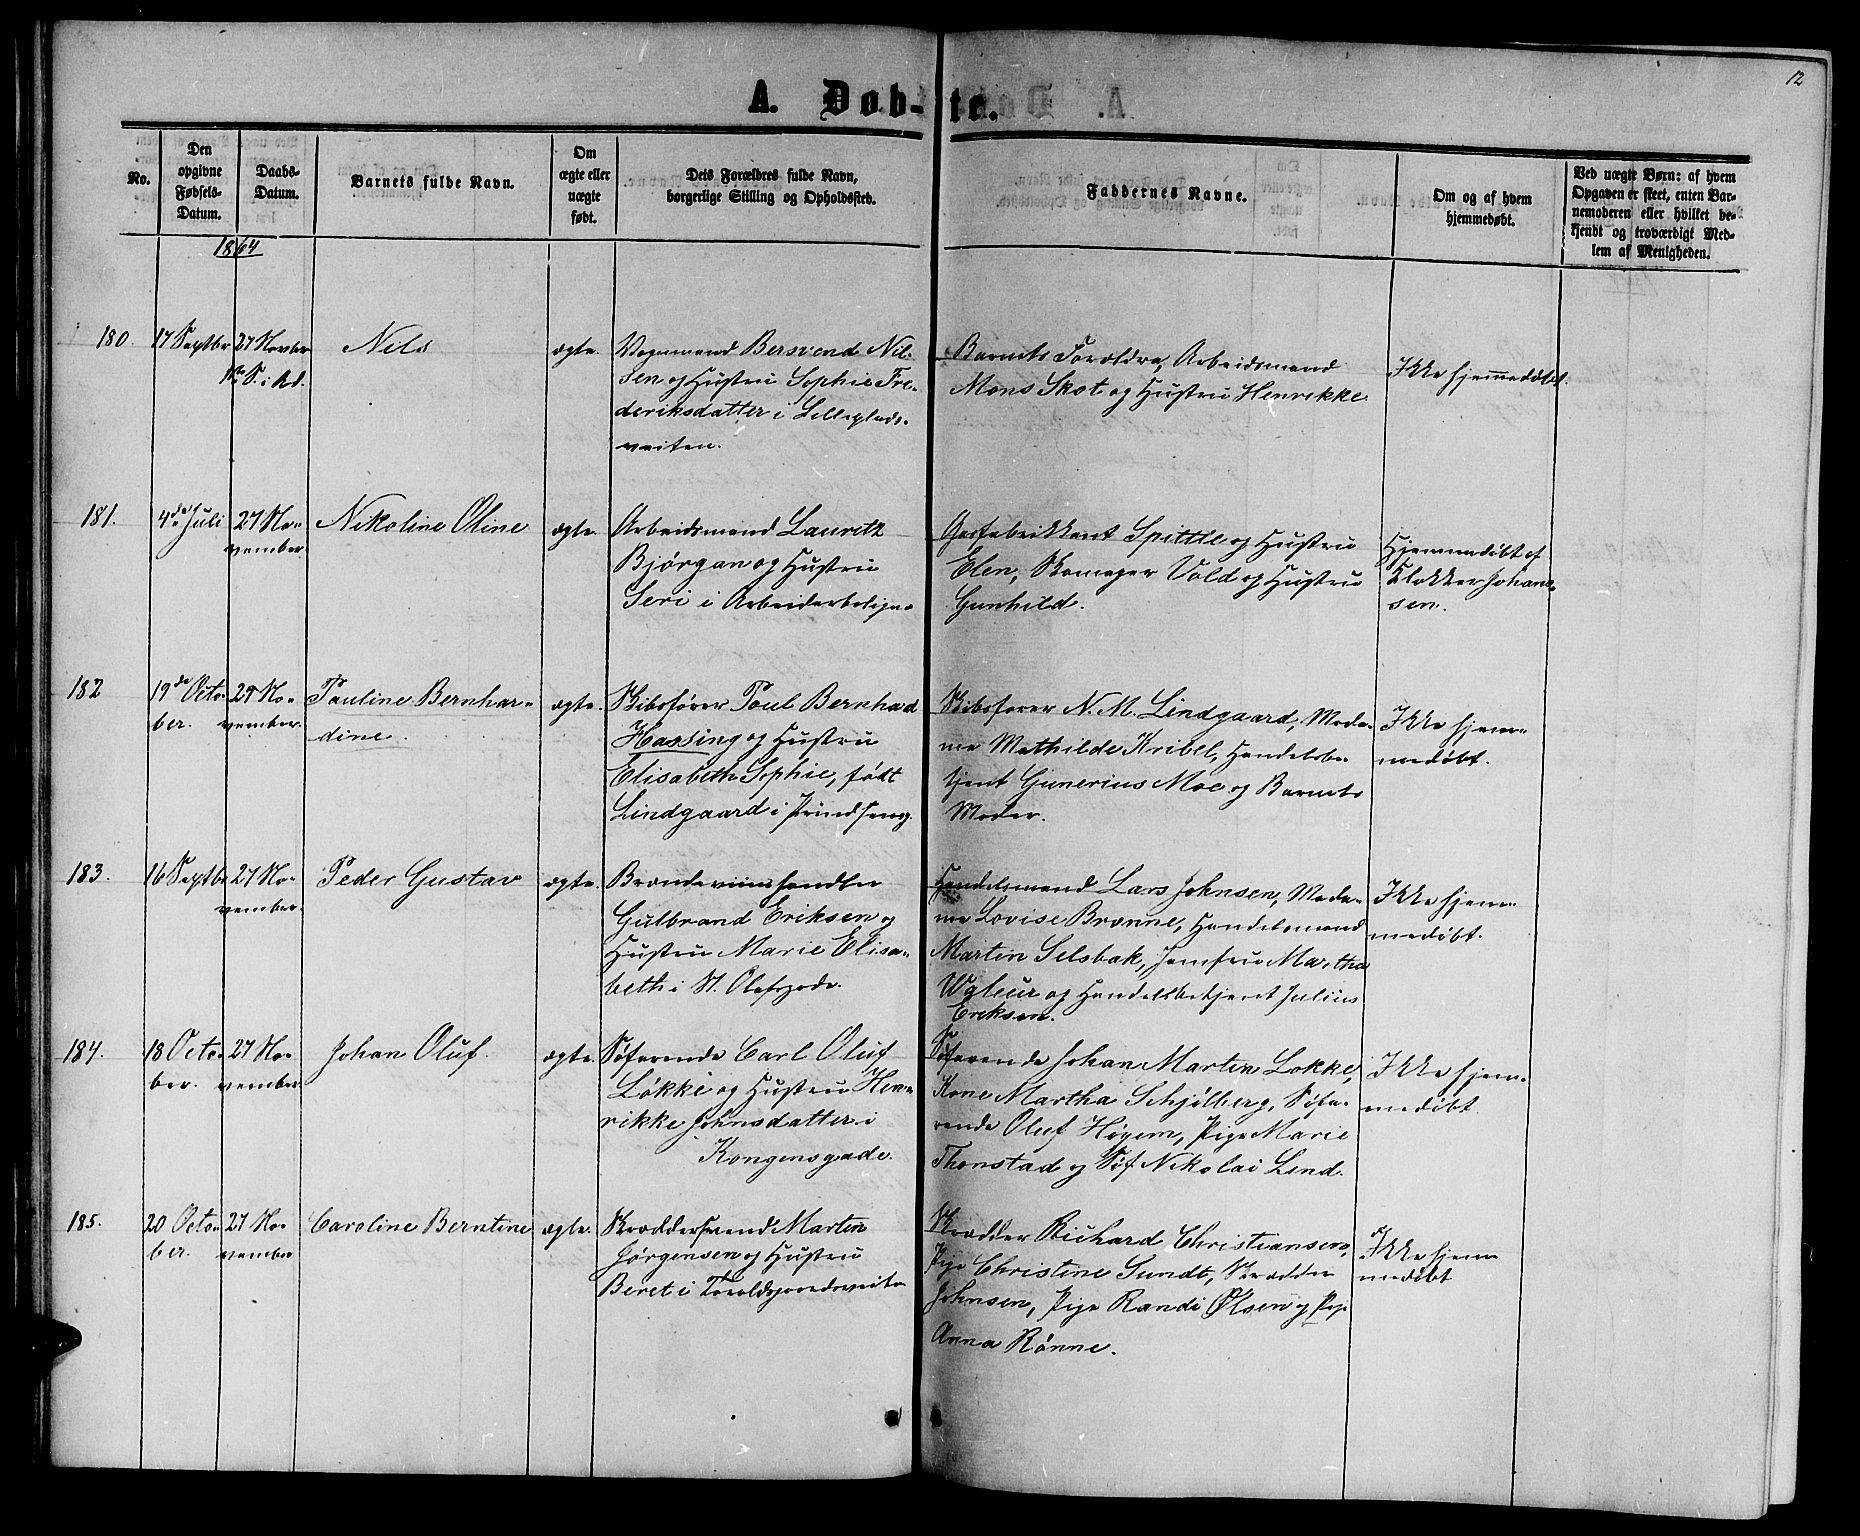 12
A. Døbte.
No.
Den opgivne Fødsels-Datum.
Daabs-Datum.
Barnets fulde Navn.
Om ægte eller uægte født.
Dets Forældres fulde Navn, borgerlige Stilling og Opholdssted.
Faddernes Navne.
Om og af hvem hjemmedøbt.
Ved uægte Børn: af hvem Opgaven er skeet, enten Barnemoderen eller hvilket bekjendt og troværdigt Medlem af Menigheden.
1864
180.
17 Septbr
27 Novbr
1ste S. i Ad.
Nils
ægte.
Vognmand Bersvend Nil-
sen og Hustru Sophie Fre-
deriksdatter i Lilleplads-
veiten.
Barnets Forældre, Arbeidsmand
Mons Skot og Hustru Henrikke.
Ikke hjemmedøbt.
181.
4de Juli
27 No-
vember.
Nikoline Oline
ægte.
Arbeidsmand Lauretz
Bjørgan og Hustru
Seri i Arbeiderbolign-
Gasfabrikkent Spittle og Hustru
Elen, Skomager Vold og Hustru
Gunhild.
Hjemmedøbt af
Klokker Johan-
sen.
182
19de Octo-
ber.
27 No-
vember.
Pauline Bernhar-
dine.
ægte.
Skibsfører Poul Bernhad
Hassing og Hustru
Elisabeth Sophie, født
Lindgaard i Prindseng.
Skibsfører N. M. Lindgaard, Mada-
me Mathilde Kribel, Handelsbe-
tjent Gunerius Moe og Barnets
Moder.
Ikke hjem-
medøbt.
183.
16 Septbr
27 No-
vember.
Peder Gustav
ægte.
Brændeviinshandler
Gulbrand Eriksen og
Hustru Marie Elisa-
beth i St. Olafsgade.
Handelsmand Lars Johnsen, Mada-
me Lovise Brønne, Handelsmand
Martin Selsbak, Jomfru Martha
og Handelsbetjent Julius
Eriksen.
Ikke hjem-
medøbt.
184.
18 Octo-
ber.
27 No-
vember
Johan Oluf.
ægte.
Søfarende Carl Oluf
Løkke og Hustru Hen-
rikke Johnsdatter i
Kongensgade.
Søfarende Johan Martin Løkke,
Kone Martha Schjølberg, Søfa-
rende Oluf Høyem, Pige Marie
Thonstad og Søf. Nikolai Lind.
Ikke hjem-
medøbt
185.
20 Octo-
ber.
27 No-
vember
Caroline Berntine
ægte.
Skræddersvend Martin
Jørgensen og Hustru
Beret i Toroldsgaardsveite
Skrædder Richard Christiansen,
Pige Christine Sundt, Skrædder
Johnsen, Pige Randi Olsen og Pige
Anna Rønne.
Ikke hjem
medøbt